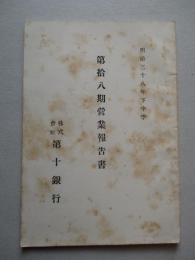 明治三十八年下半季
第拾八期営業報告書
株式会社 第十銀行